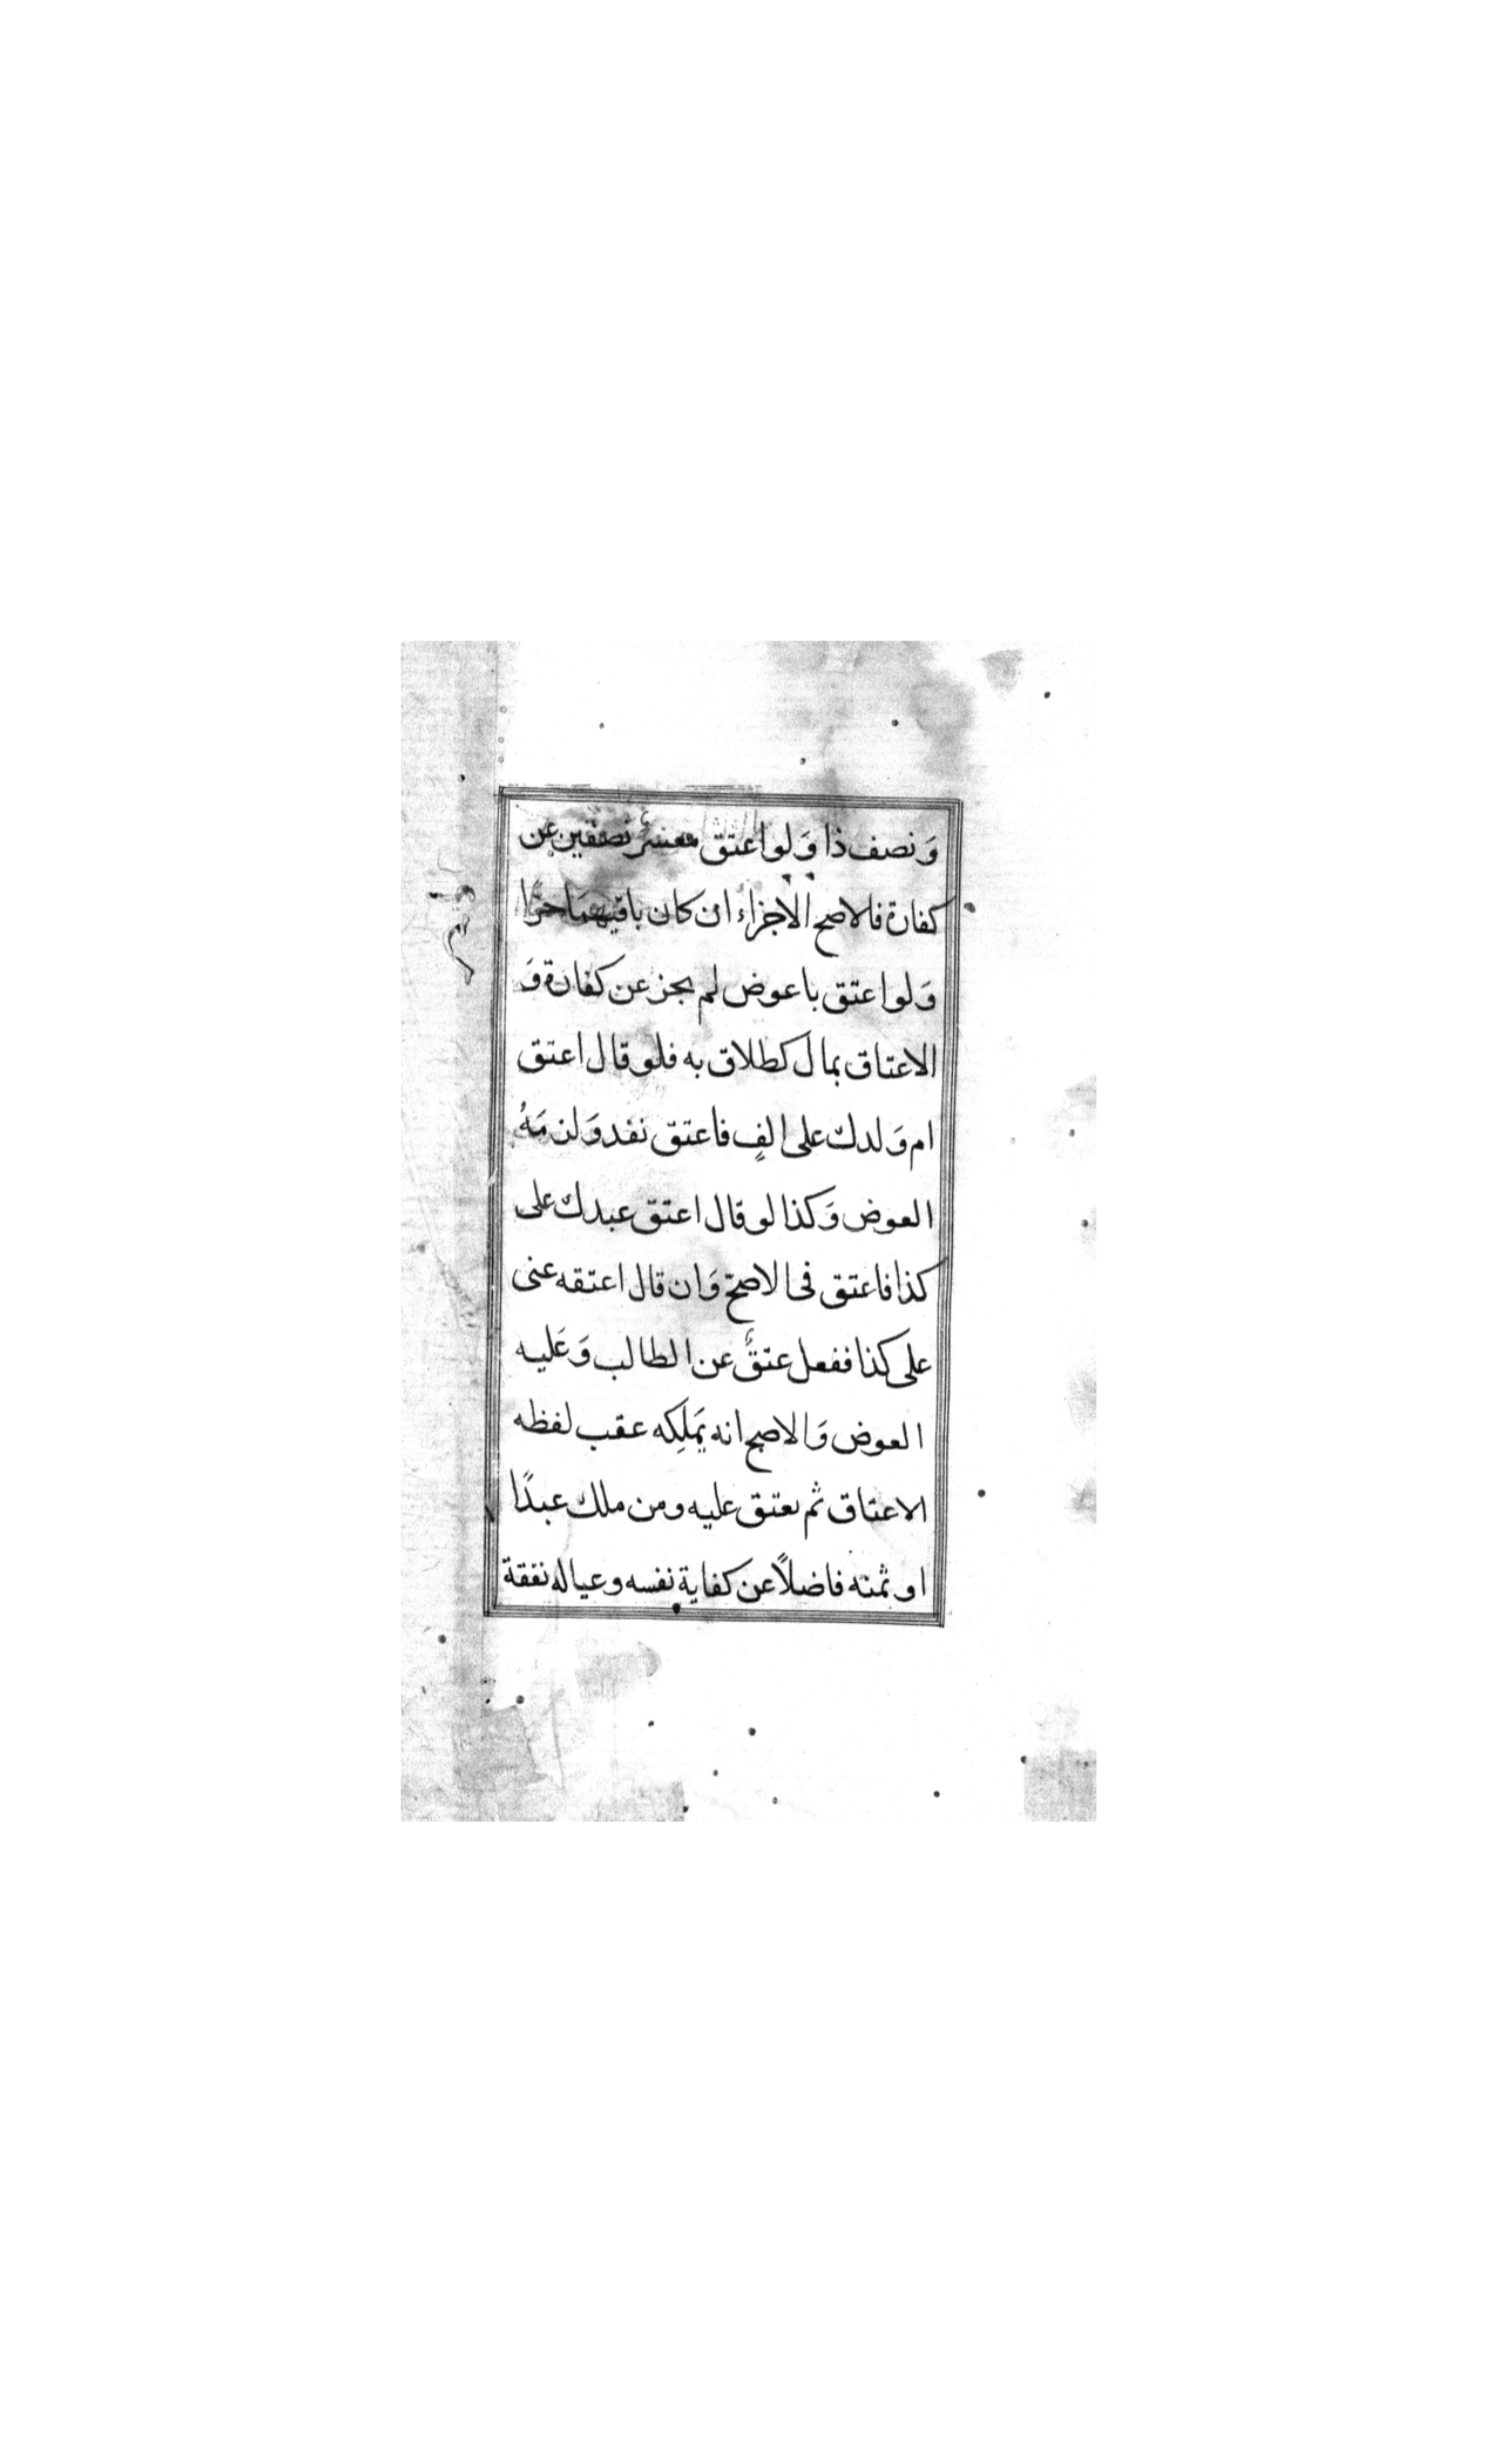 وَنصف ذا وَلو اعتق معسرٌ نصفين عن
كفارة فالاصح الاجزاءُ ان كان باقيهمَا حرًّا
وَلو اعتق باعوض لم يجز عن كفارة وَ
الاعتاق بمال كطلاق به فلو قال اعتق
ام وَلدك على الفٍ فاعتق نفد وَلزمَهُ
العوض وَكذا لو قال اعتق عبدك على
كذا فاعتق فى الاصحّ وَان قال اعتقه عنى
على كذا ففعل عتقٌ عن الطالب وَعَليه
العوض وَالاصح انه يَملِكه عقب لفظه
الاعتاق ثم يعتق عليه ومن ملك عبدًا
او ثمنه فاضلاً عن كفاية نفسه وعياله نفقة